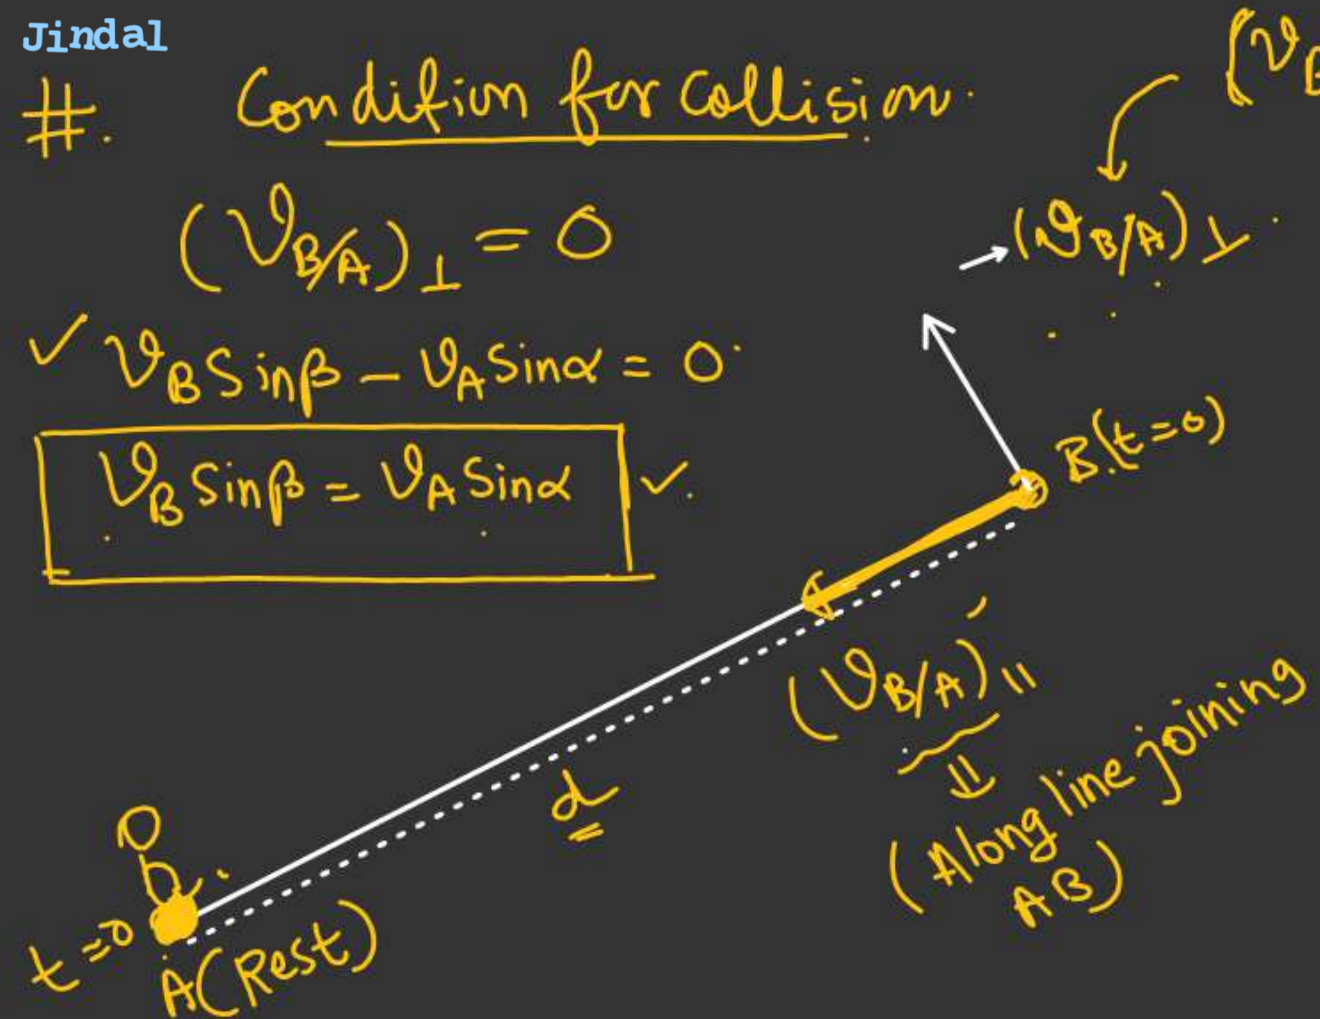 Jindal
#. Condition for Collision.
(v_B/A)⊥ = 0
✓ v_B Sinβ – v_A Sinα = 0
v_B Sinβ = v_A Sinα ✓.
(v_B
→ (v_B/A)⊥
B.(t=0)
(v_B/A)||
(Along line joining
AB)
d
t=0
A(Rest)